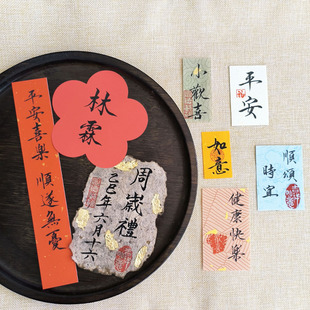 平安喜樂 順遂無憂
林霖
周歲禮
乙巳年六月十六
小歡喜
平安
如意
順頌
時宜
健康快樂